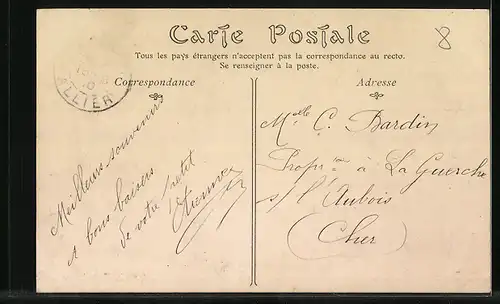 Carte Postale
8
Tous les pays étrangers n'acceptent pas la correspondance au recto.
Se renseigner à la poste.
Correspondance
Adresse
ALLIER
Meilleurs souvenirs
et bons baisers
de votre petit
Etienne
Melle C. Bardin
Propre à La Guerche
s/ l'Aubois
(Cher)